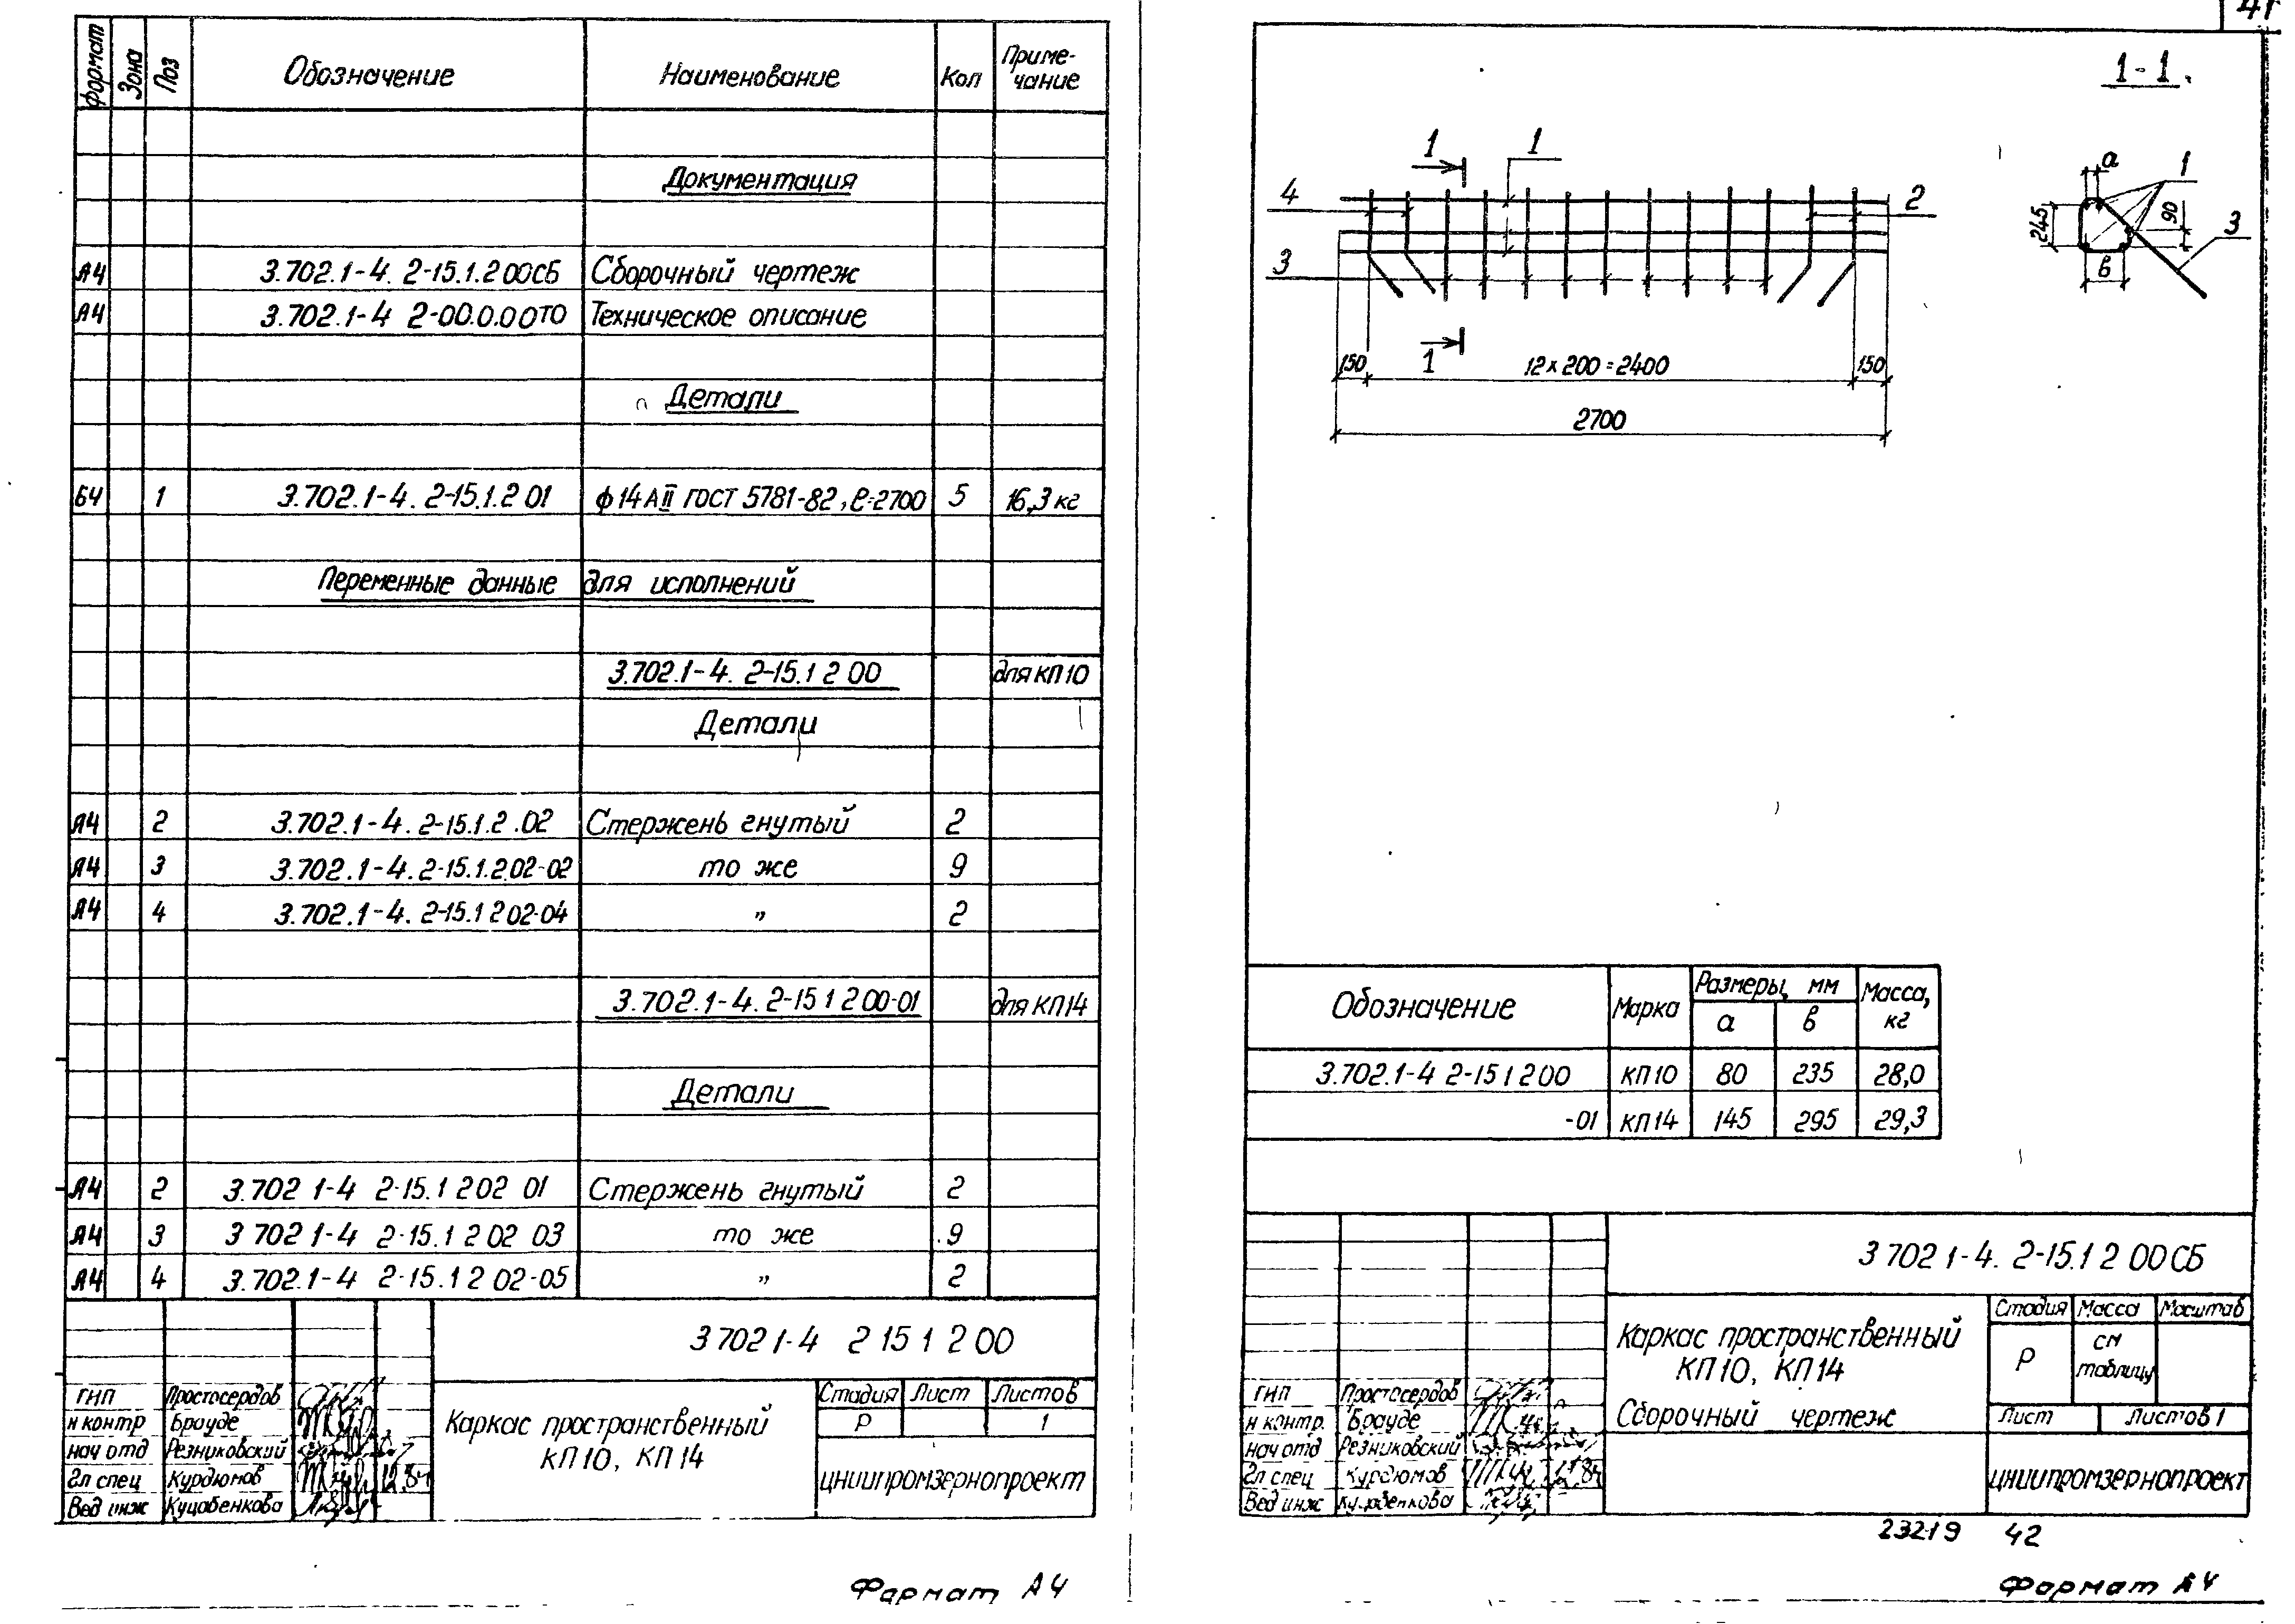 Формат Зона Поз Обозначение Наименование Кол Приме-чание
Документация
А4 3.702.1-4. 2-15.1.2 00СБ Сборочный чертеж
А4 3.702.1-4 2-00.0.00ТО Техническое описание
Детали
БЧ 1 3.702.1-4. 2-15.1.2 01 ф14АII ГОСТ 5781-82, ℓ=2700 5 16,3кг
Переменные данные для исполнений
3.702.1-4. 2-15.1 2 00 для КП10
Детали
А4 2 3.702.1-4. 2-15.1.2.02 Стержень гнутый 2
А4 3 3.702.1-4. 2-15.1.2.02-02 то же 9
А4 4 3.702.1-4. 2-15.1 2 02-04 " 2
3.702.1-4. 2-15 1 2 00-01 для КП14
Детали
А4 2 3.702 1-4 2-15.1 2 02 01 Стержень гнутый 2
А4 3 3 702 1-4 2-15.1 2 02 03 то же 9
А4 4 3.702.1-4 2-15.1 2 02-05 " 2
3 702 1-4 2 15 1 2 00
ГНП Простосердов
н контр Брауде
нач отд Резниковский
Гл спец Курдюмов 12.84
Вед инж Куцабенкова
Каркас пространственный
КП10, КП14
Стадия Лист Листов
Р 1
ЦНИИПРОМЗЕРНОПРОЕКТ
Формат А4
41
1-1
1 1
4 2
3
1
150 12х200=2400 150
2700
а 1
245 90 3
в
Обозначение Марка Размеры, мм Масса, кг
а в
3.702.1-4 2-15 1 2 00 КП10 80 235 28,0
-01 КП14 145 295 29,3
3 702 1-4. 2-15.1 2 00СБ
Каркас пространственный
КП10, КП14
Сборочный чертеж
Стадия Масса Масштаб
Р см таблицу
Лист Листов 1
ГНП Простосердов
н контр. Брауде
нач отд Резниковский
Гл спец Курдюмов
Вед инж Куцабенкова
ЦНИИПРОМЗЕРНОПРОЕКТ
23219 42
Формат А4